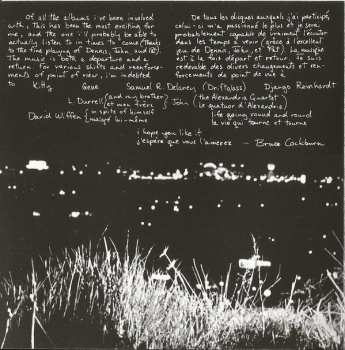 Of all the albums i've been involved
with, this has been the most exciting for
me, and the one i'll probably be able to
actually listen to in times to come (thanks
to the fine playing of Dennis, John, and Pat).
The music is both a departure and a
return. For various shifts and reenforce-
ments of point of view, i'm indebted
to
De tous les disques auxquels j'ai participé,
celui-ci m'a passionné le plus et je serai
probablement capable de vraiment l'écouter
dans les temps à venir (grâce à l'excellent
jeu de Dennis, John, et Pat). La musique
est à la fois départ et retour. Je suis
redevable des divers changements et ren-
forcements de point de vue à
Kitty Gene Samuel R. Delaney (Dr. Tolass) Django Reinhardt
L. Durrell (and my brother) John (the Alexandria Quartet)
et mon frère (le quatuor d'Alexandria)
David Wiffen in spite of himself life going round and round
malgré lui-même la vie qui tourne et tourne
i hope you like it
j'espère que vous l'aimerez - Bruce Cockburn